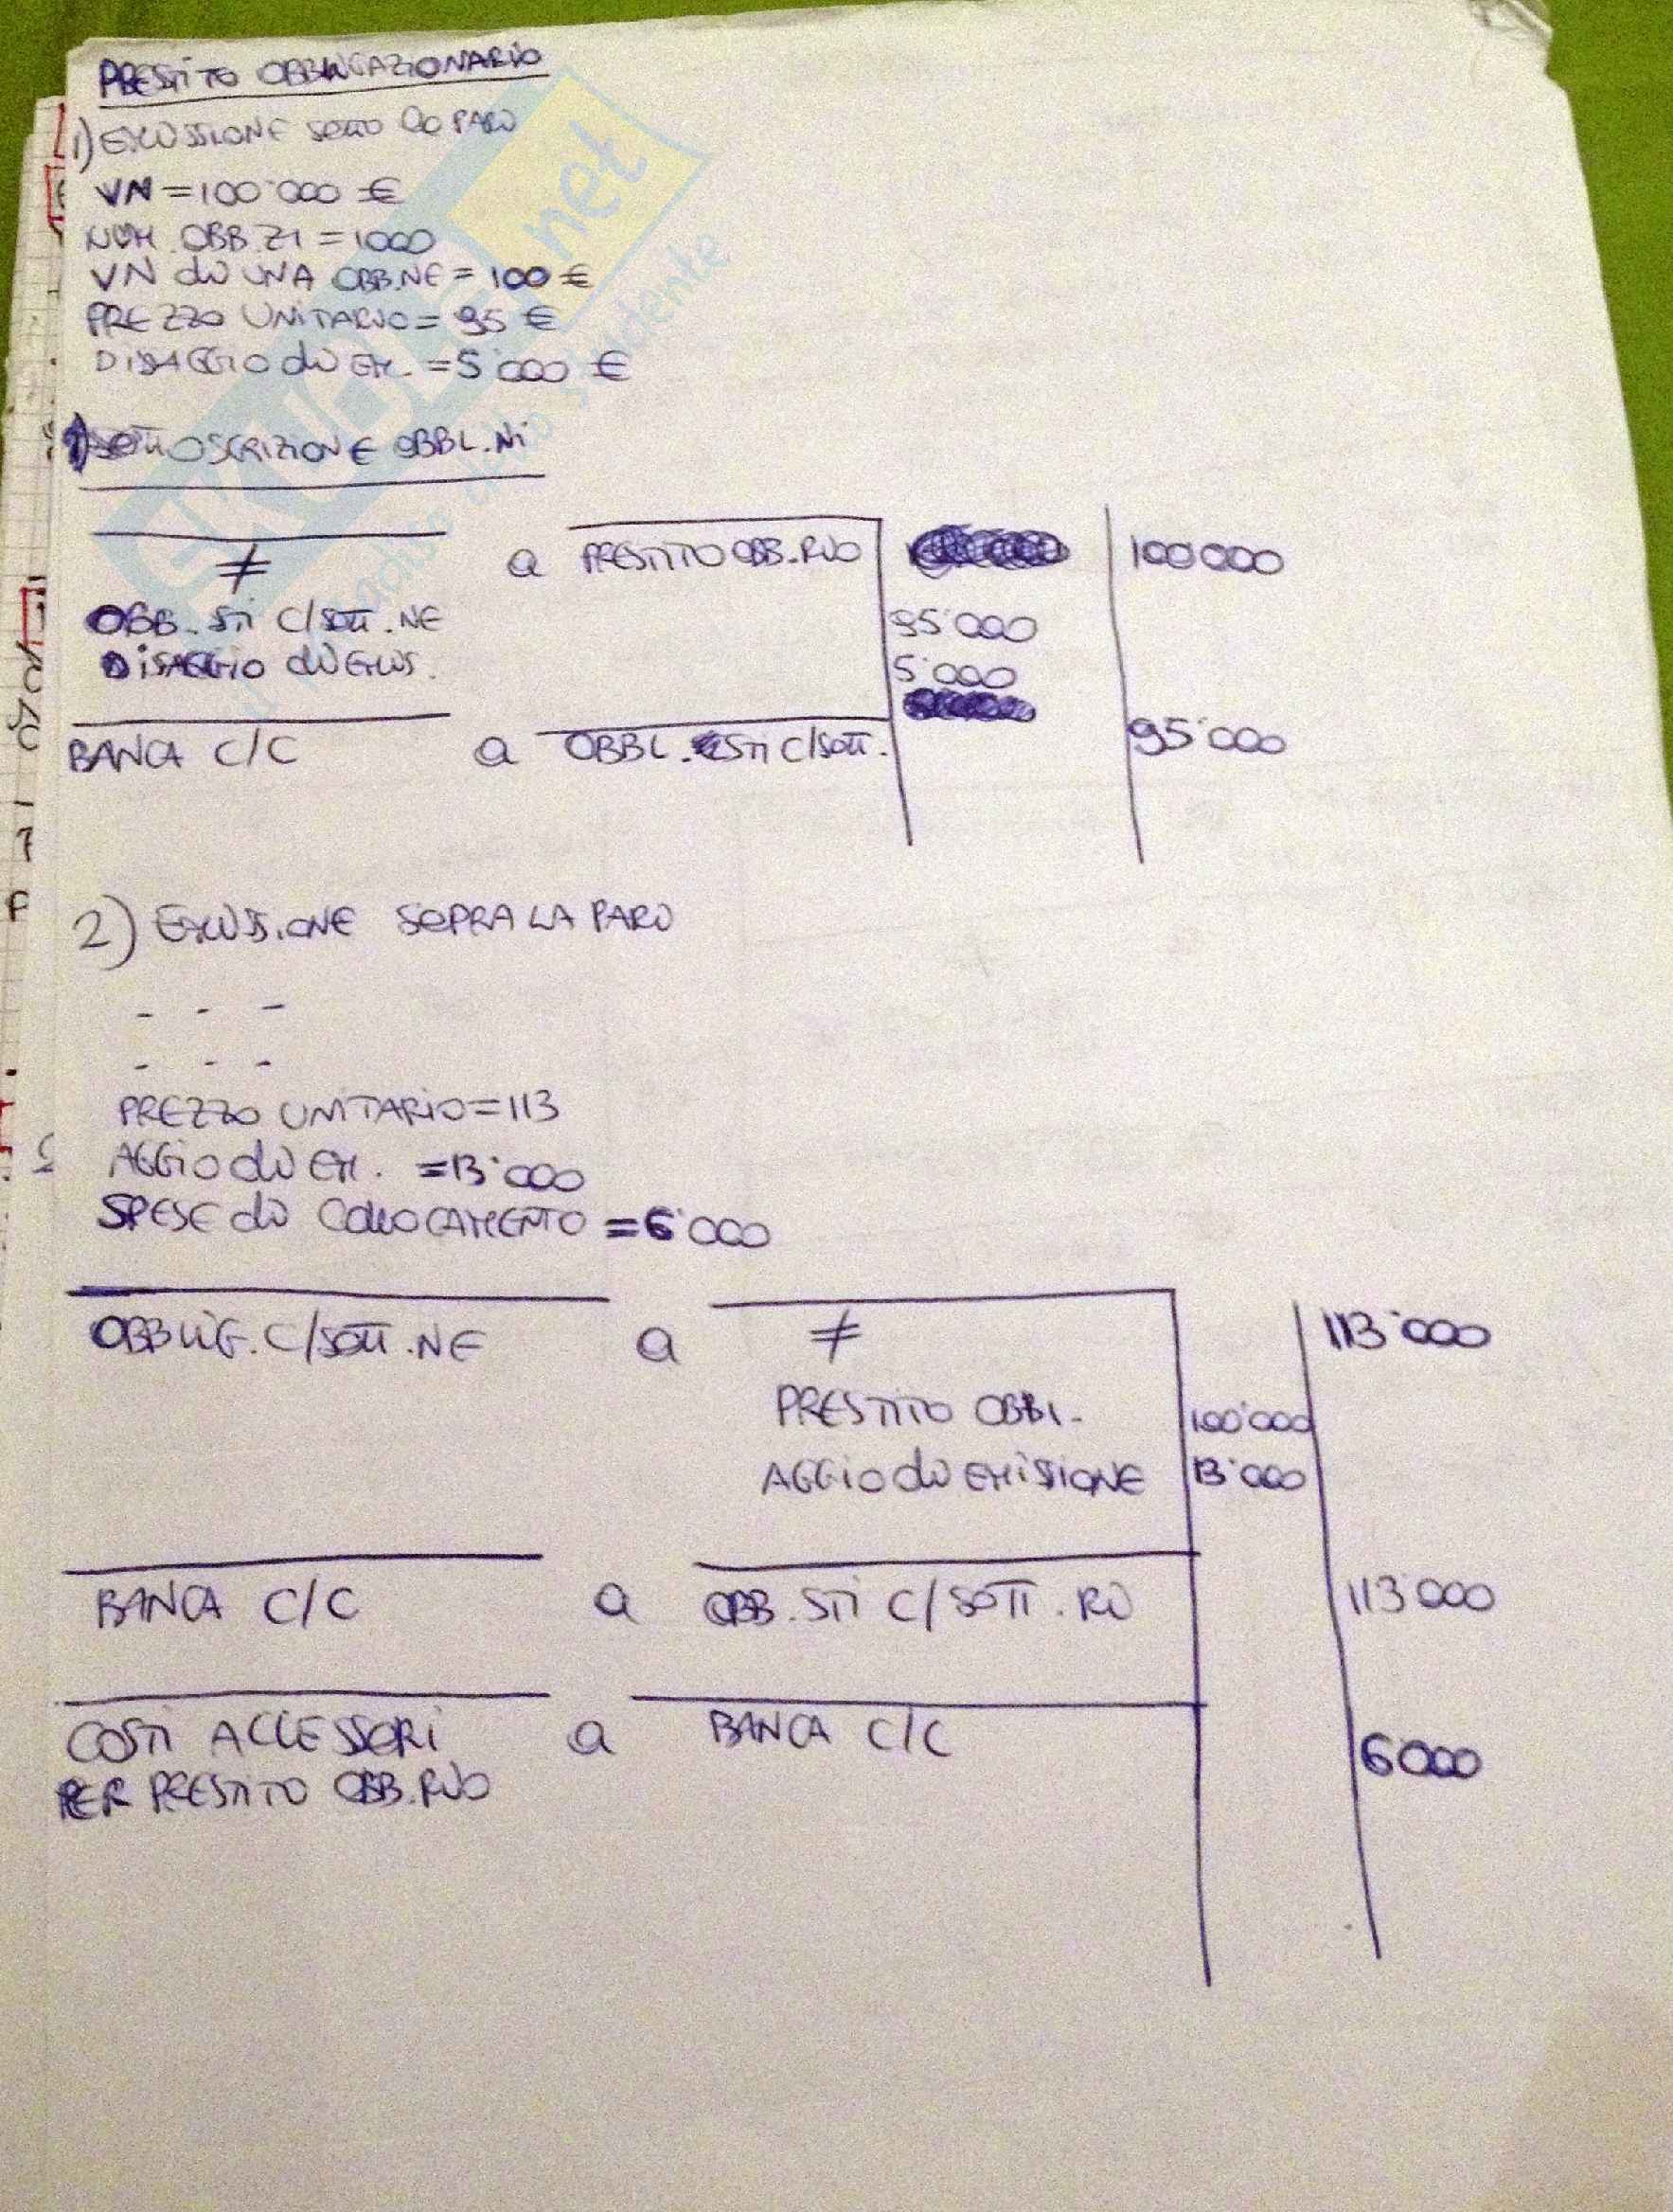 PRESTITO OBBLIGAZIONARIO
1) EMISSIONE SOTTO LA PARI
VN = 100'000 €
NUM. OBB.ZI = 1000
VN di UNA OBB.NE = 100 €
PREZZO UNITARIO = 95 €
DISAGGIO di EM. = 5'000 €
1) SOTTOSCRIZIONE OBBL.NI
≠ a PRESTITO OBB.RIO 100'000
OBB.STI C/SOTT.NE 95'000
DISAGGIO di EMIS. 5'000
BANCA C/C a OBBL.STI C/SOTT. 95'000
2) EMISSIONE SOPRA LA PARI
- - -
- - -
PREZZO UNITARIO = 113
AGGIO di EM. = 13'000
SPESE di COLLOCAMENTO = 6'000
OBBLIG. C/SOTT.NE a ≠ 113'000
PRESTITO OBBL. 100'000
AGGIO di EMISSIONE 13'000
BANCA C/C a OBB.STI C/SOTT.RI 113'000
COSTI ACCESSORI a BANCA C/C 6000
PER PRESTITO OBB.RIO
net